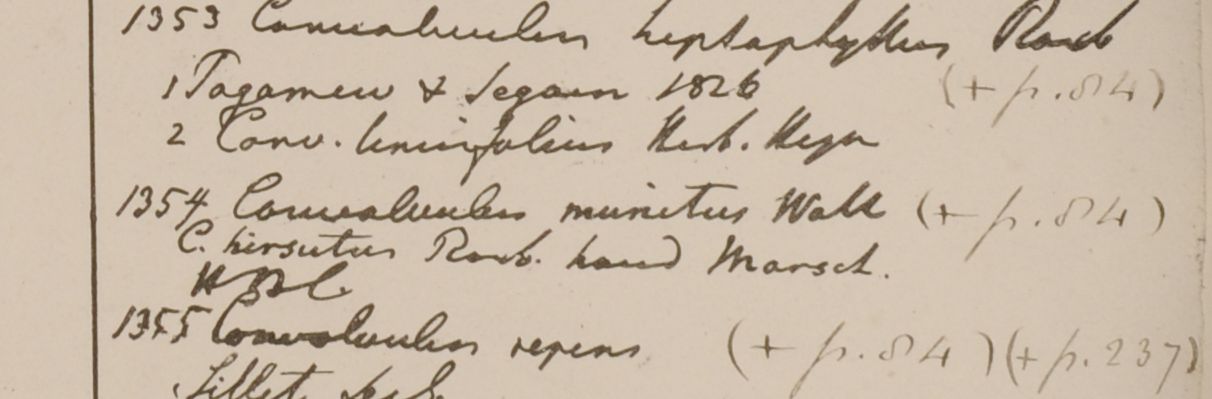 1353 Convolvulus heptaphyllus Roxb
1 Tagamew & Segain 1826 (+ p. 84)
2 Conv. linifolius Herb. Heyn
1354 Convolvulus munitus Wall (+ p. 84)
C. hirsutus Roxb. haud Marsch.
HBC
1355 Convolvulus repens (+ p. 84) (+ p. 237)
Sillet